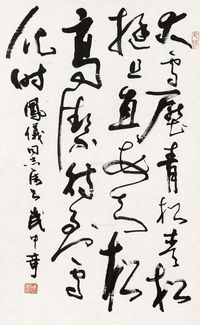 大雪壓青松青松
挺且直要知松
高潔待到雪
化時 鳳儀同志 武中奇